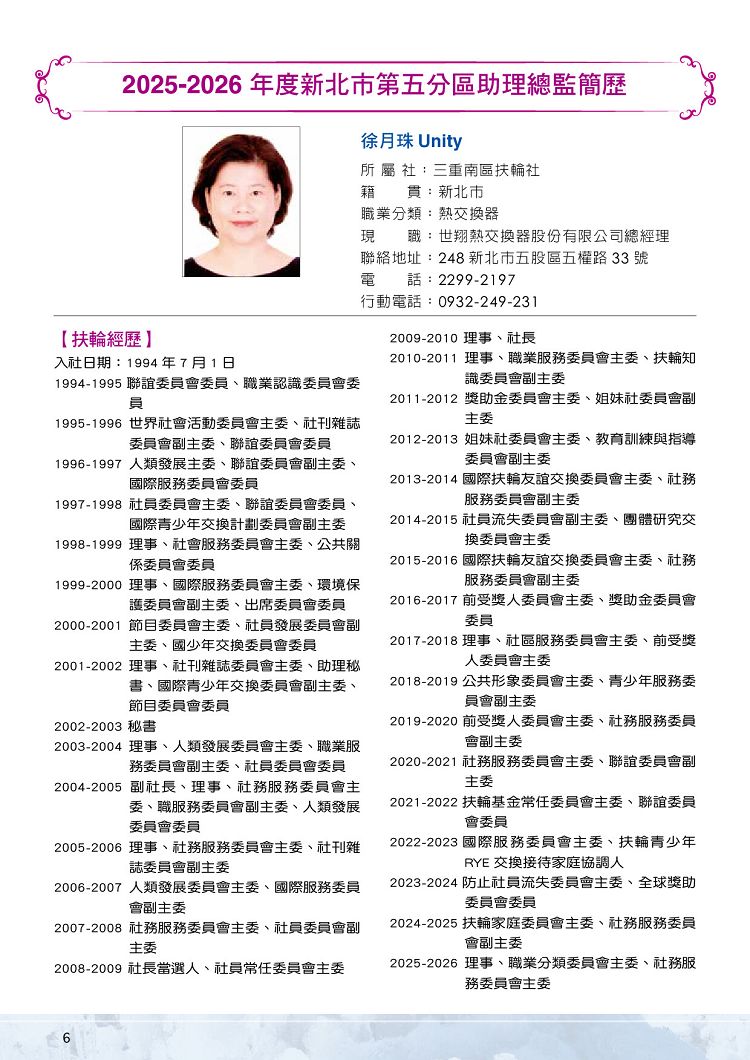 2025-2026 年度新北市第五分區助理總監簡歷
徐月珠 Unity
所屬社：三重南區扶輪社
籍貫：新北市
職業分類：熱交換器
現職：世翔熱交換器股份有限公司總經理
聯絡地址：248 新北市五股區五權路 33 號
電話：2299-2197
行動電話：0932-249-231
【扶輪經歷】
入社日期：1994 年 7 月 1 日
1994-1995 聯誼委員會委員、職業認識委員會委
員
1995-1996 世界社會活動委員會主委、社刊雜誌
委員會副主委、聯誼委員會委員
1996-1997 人類發展主委、聯誼委員會副主委、
國際服務委員會委員
1997-1998 社員委員會主委、聯誼委員會委員、
國際青少年交換計劃委員會副主委
1998-1999 理事、社會服務委員會主委、公共關
係委員會委員
1999-2000 理事、國際服務委員會主委、環境保
護委員會副主委、出席委員會委員
2000-2001 節目委員會主委、社員發展委員會副
主委、國少年交換委員會委員
2001-2002 理事、社刊雜誌委員會主委、助理秘
書、國際青少年交換委員會副主委、
節目委員會委員
2002-2003 秘書
2003-2004 理事、人類發展委員會主委、職業服
務委員會副主委、社員委員會委員
2004-2005 副社長、理事、社務服務委員會主
委、職服務委員會副主委、人類發展
委員會委員
2005-2006 理事、社務服務委員會主委、社刊雜
誌委員會副主委
2006-2007 人類發展委員會主委、國際服務委員
會副主委
2007-2008 社務服務委員會主委、社員委員會副
主委
2008-2009 社長當選人、社員常任委員會主委
2009-2010 理事、社長
2010-2011 理事、職業服務委員會主委、扶輪知
識委員會副主委
2011-2012 獎助金委員會主委、姐妹社委員會副
主委
2012-2013 姐妹社委員會主委、教育訓練與指導
委員會副主委
2013-2014 國際扶輪友誼交換委員會主委、社務
服務委員會副主委
2014-2015 社員流失委員會副主委、團體研究交
換委員會主委
2015-2016 國際扶輪友誼交換委員會主委、社務
服務委員會副主委
2016-2017 前受獎人委員會主委、獎助金委員會
委員
2017-2018 理事、社區服務委員會主委、前受獎
人委員會主委
2018-2019 公共形象委員會主委、青少年服務委
員會副主委
2019-2020 前受獎人委員會主委、社務服務委員
會副主委
2020-2021 社務服務委員會主委、聯誼委員會副
主委
2021-2022 扶輪基金常任委員會主委、聯誼委員
會委員
2022-2023 國際服務委員會主委、扶輪青少年
RYE 交換接待家庭協調人
2023-2024 防止社員流失委員會主委、全球獎助
委員會委員
2024-2025 扶輪家庭委員會主委、社務服務委員
會副主委
2025-2026 理事、職業分類委員會主委、社務服
務委員會主委
6